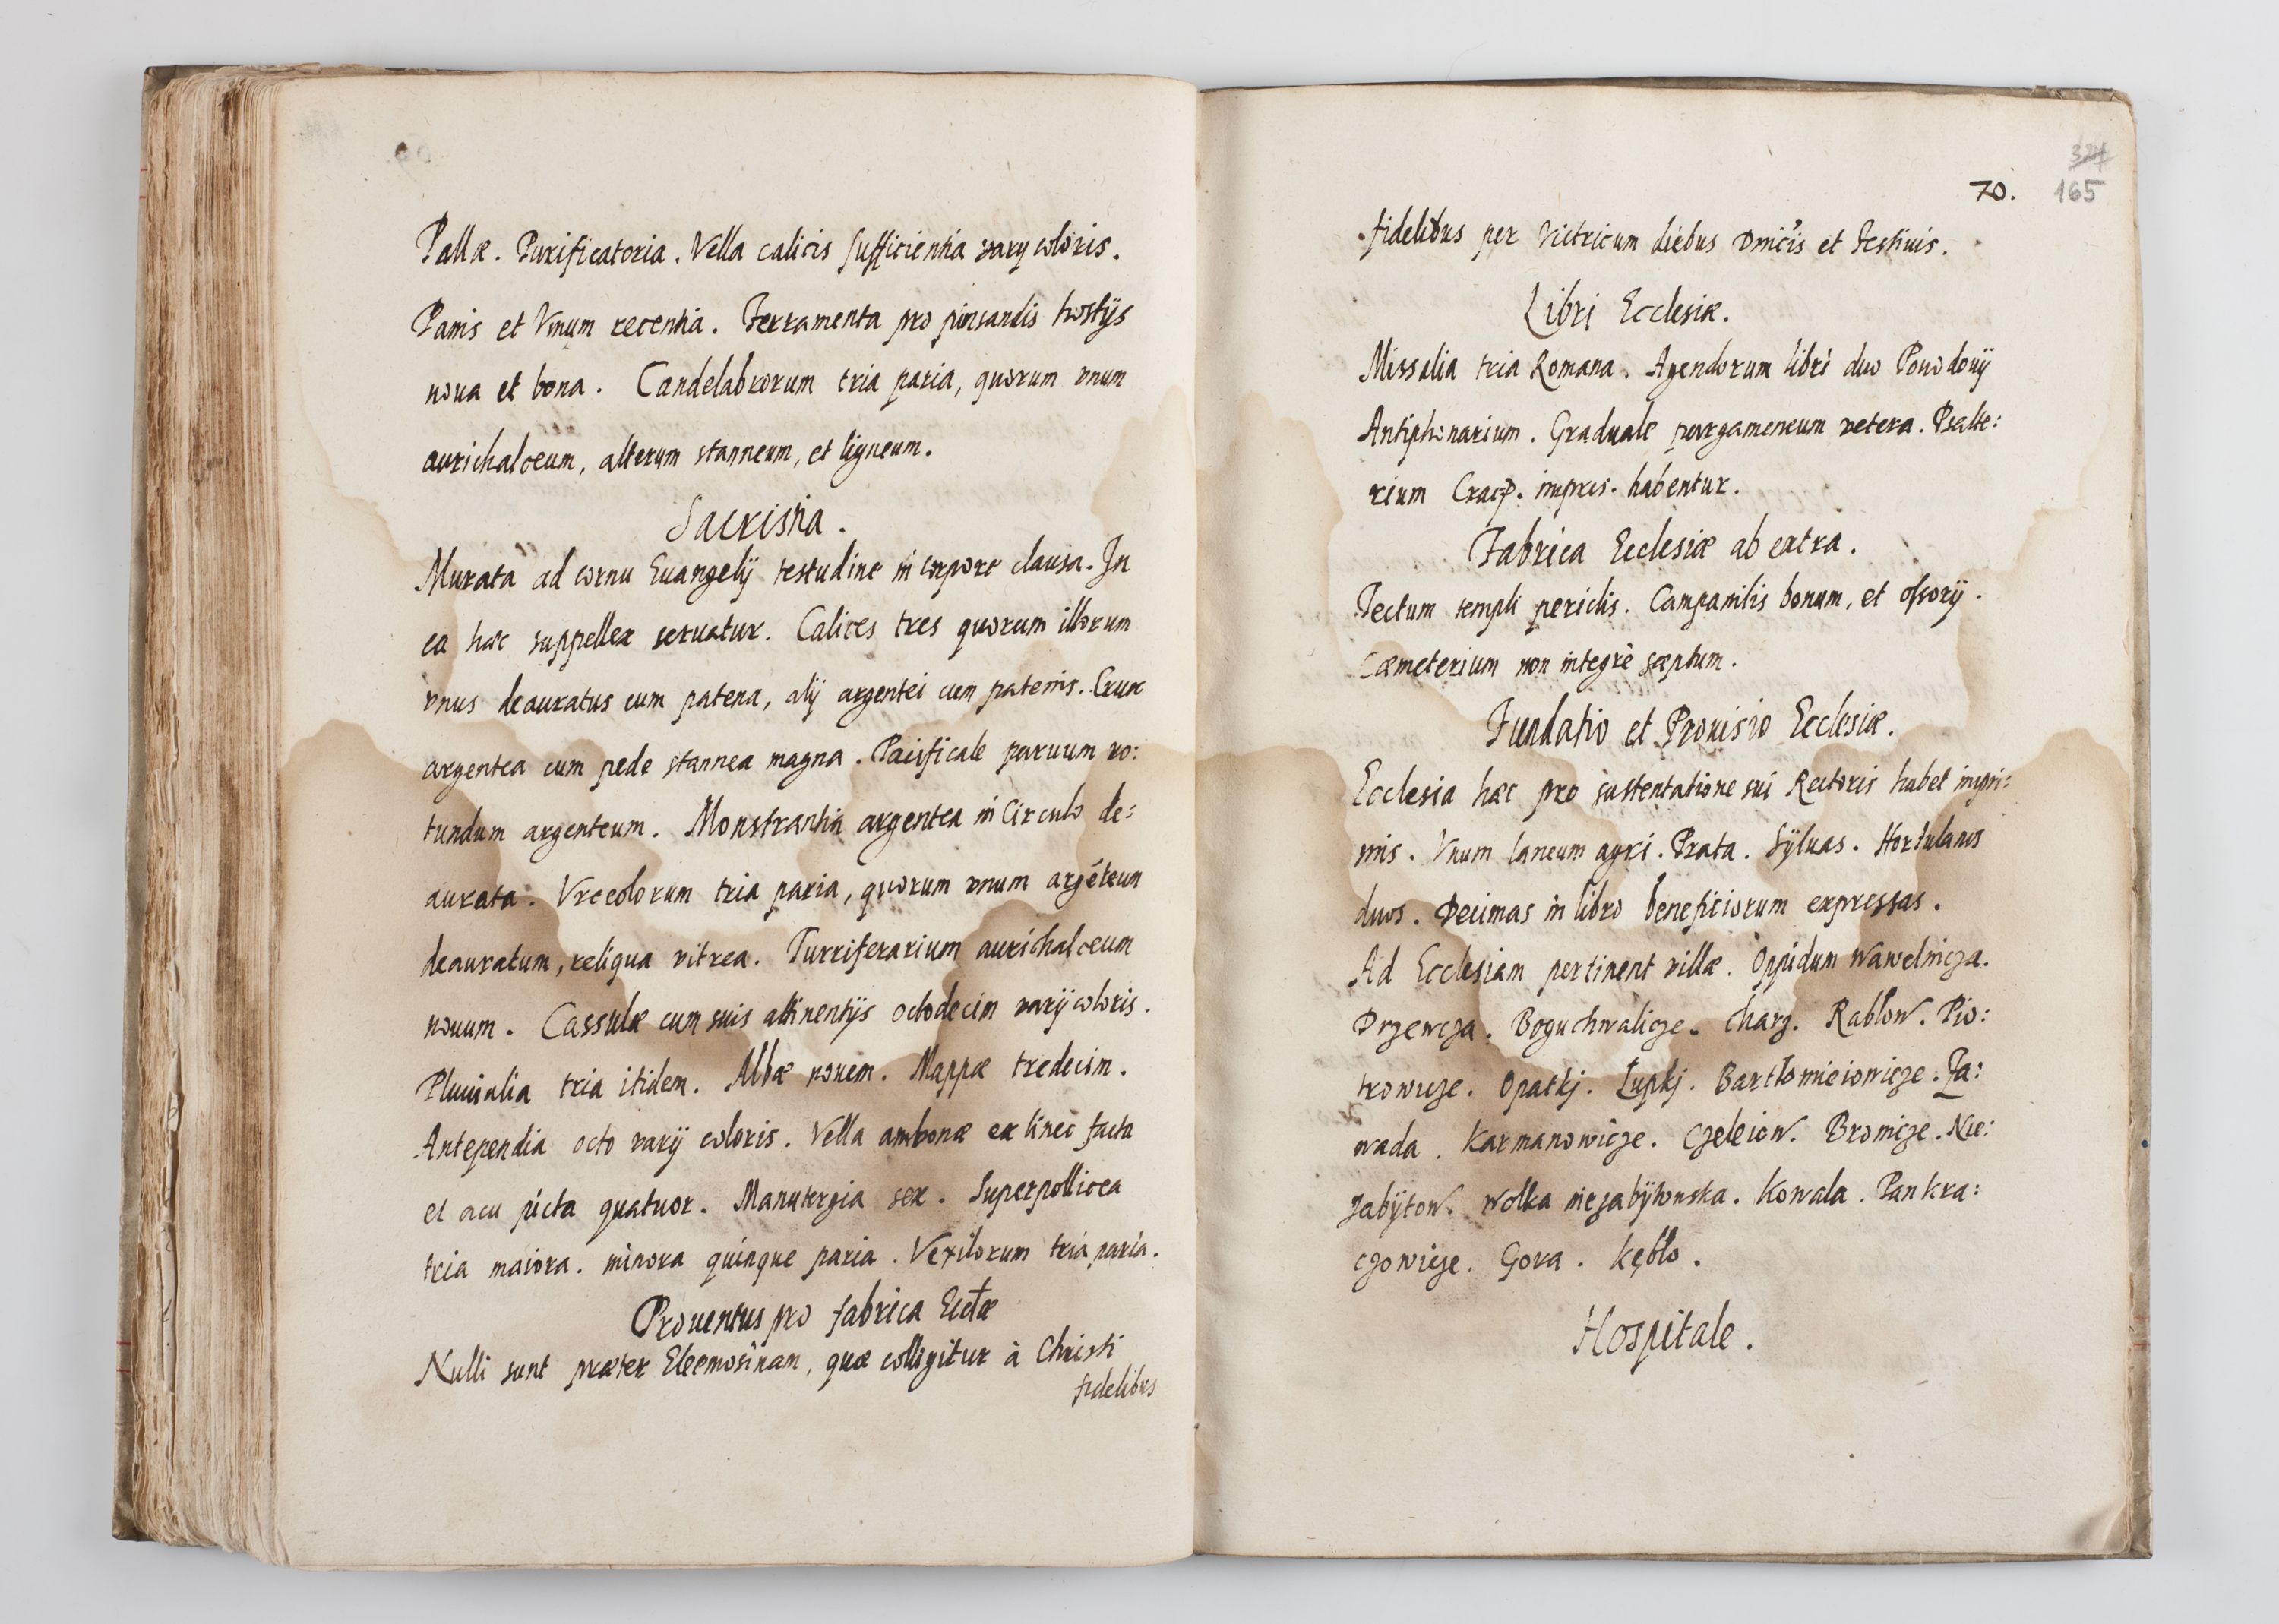 Pallæ. Purificatoria. Vella calicis sufficientia varij coloris.
Panis et Vinum recentia. Ferramenta pro pinsandis hostijs
noua et bona. Candelabrorum tria paria, quorum vnum
aurichalceum, alterum stanneum, et ligneum.
Sacristia.
Murata ad cornu Euangelij testudine in corpore clausa. In
ea hæc suppellex seruatur. Calices tres quorum illorum
vnus deauratus cum patena, alij argentei cum patenis. Crux
argentea cum pede stannea magna. Pacificale paruum ro:
tundum argenteum. Monstrantia argentea in Circulo de:
aurata. Vrceolorum tria paria, quorum vnum argēteum
deauratum, reliqua vitrea. Turriferarium aurichalceum
nouum. Cassulæ cum suis attinentijs octodecim varij coloris.
Pluuialia tria itidem. Albæ nouem. Mappæ tredecim.
Antependia octo varij coloris. Vella ambonæ ex lineo facta
et acu picta quatuor. Manutergia sex. Superpollicea
tria maiora. minora quinque paria. Vexilorum tria paria.
Prouentus pro fabrica Ecclæ
Nulli sunt præter Eleemosinam, quæ colligitur à Christi
fidelibus
70.
165
fidelibus per Vitricum diebus Dnicis et Festiuis.
Libri Ecclesiæ.
Missalia tria Romana. Agendorum libri duo Powodouij
Antiphonarium. Graduale pargameneum vetera. Psalte:
rium impres. habentur.
Fabrica Ecclesiæ ab extra.
Tectum templi periclis. Campanilis bonum, et ossorij.
Cæmeterium non integrè sæptum.
Fundatio et Prouisio Ecclesiæ.
Ecclesia hæc pro sustentatione sui Rectoris habet inpri:
mis. Vnum laneum agri. Prata. Syluas. Hortulanos
duos. Decimas in libro beneficiorum expressas.
Ad Ecclesiam pertinent villæ. Oppidum Wawelnicza.
Drzewcza. Boguchwalicze. Charz. Rabłow. Pio:
trowicze. Opatkj. Łupkj. Bartłomieiowicze. Za:
wada. Karmanowicze. Czeleiow. Bronicze. Nie:
zabÿtow. Wolka niezabÿtowska. Kowala. Pankra:
czowicze. Gora. Kębło.
Hospitale.